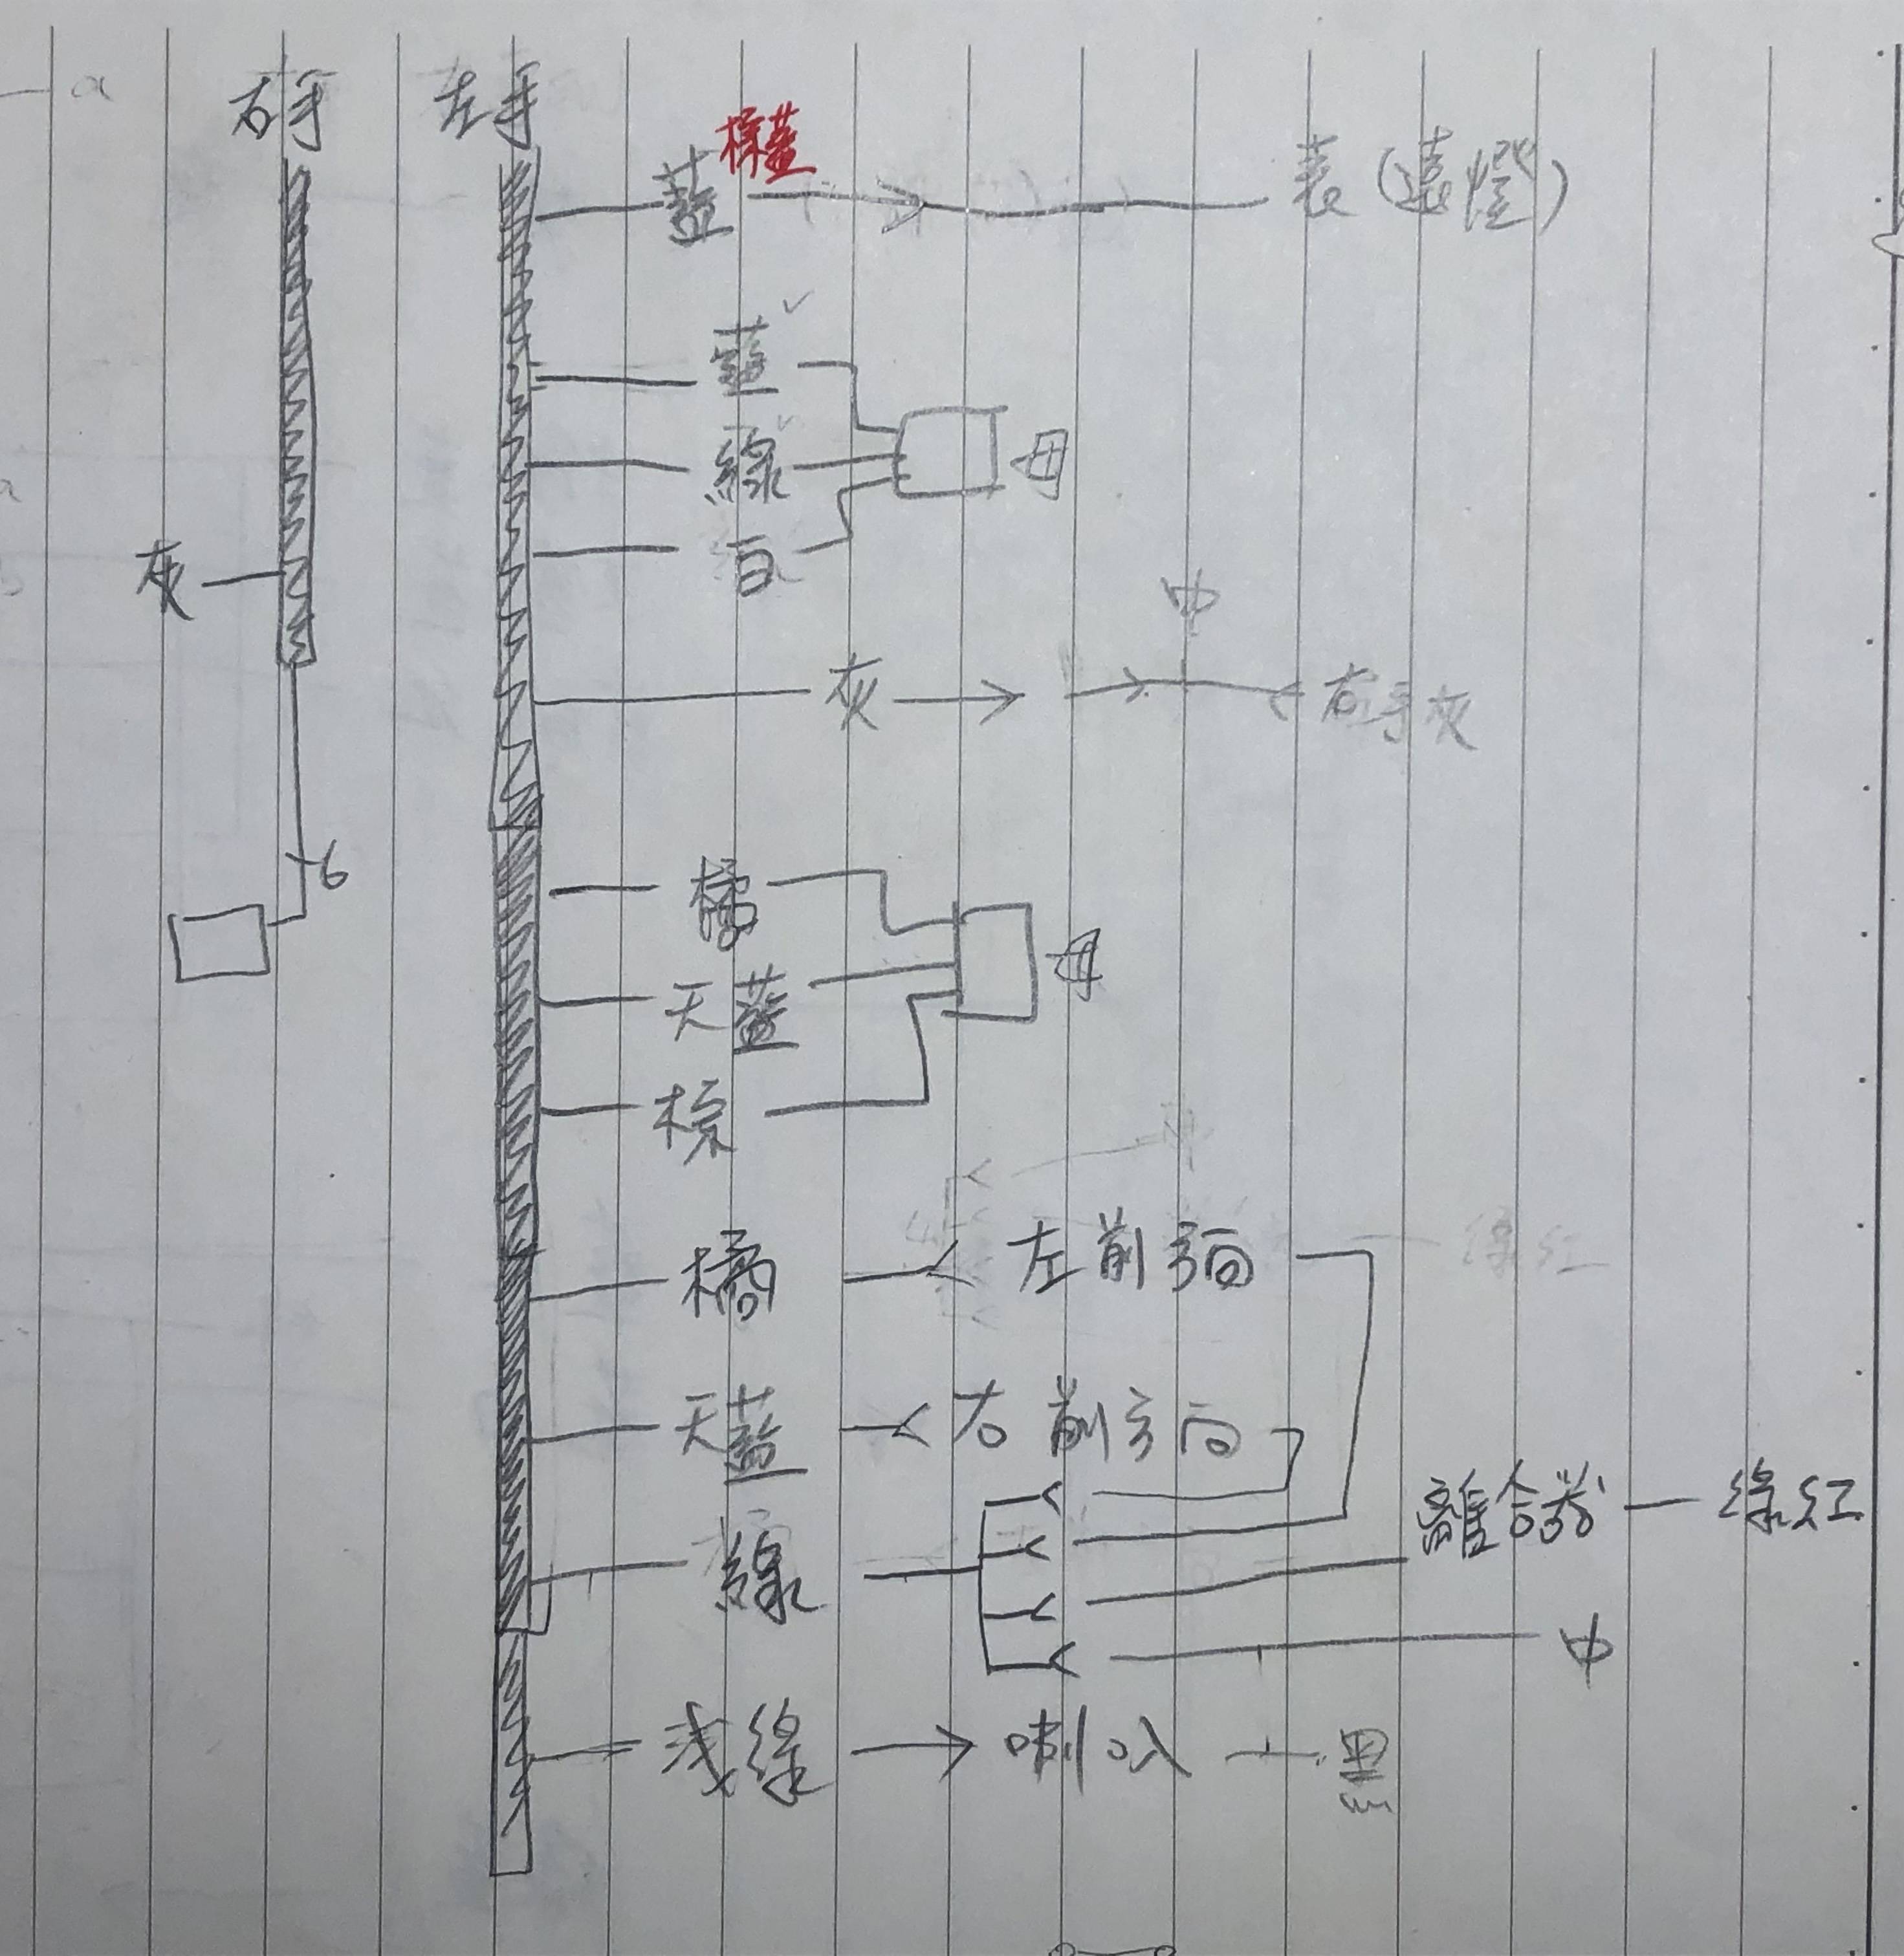 右手 左手
橘藍
藍 表(遠燈)
藍
綠 母
白
灰
中
灰 右手灰
6
橘
天藍 母
棕
中
橘 左前方向 綠紅
天藍 右前方向
綠 離合器 綠紅
中
淺綠 喇叭 黑